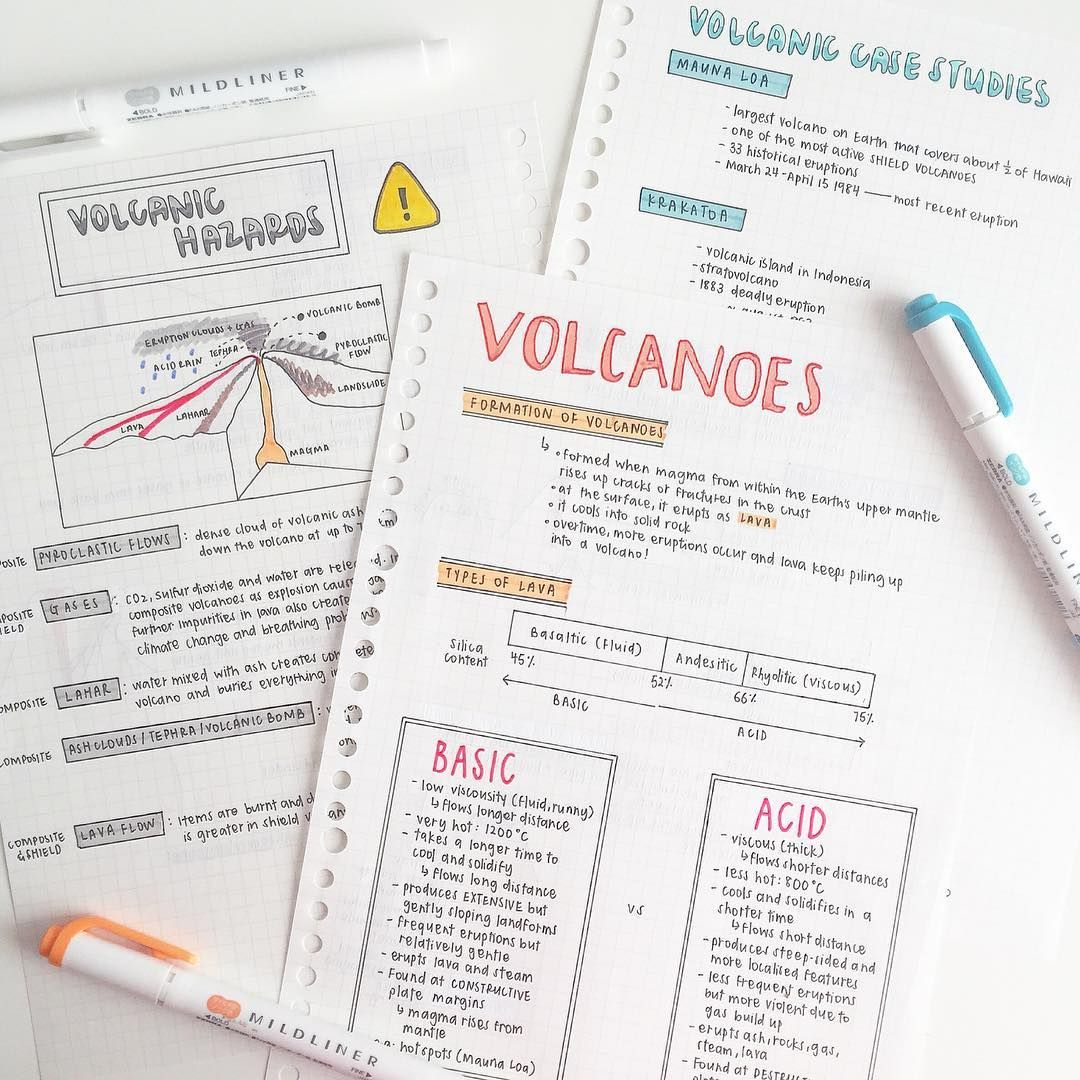 MILDLINER
BOLD
FINE
VOLCANIC
HAZARDS
!
ERUPTION CLOUDS + GAS
VOLCANIC BOMB
ACID RAIN
TEPHRA
PYROCLASTIC
FLOW
LANDSLIDE
LAHAR
LAVA
MAGMA
PYROCLASTIC FLOWS : dense cloud of volcanic ash
down the volcano at up to
GASES : CO2, sulfur dioxide and water are
composite volcanoes as explosion
further impurities in lava also create
climate change and breathing
COMPOSITE LAHAR : water mixed with ash creates
volcano and buries everything
COMPOSITE ASH CLOUDS / TEPHRA / VOLCANIC BOMB :
COMPOSITE
& SHIELD LAVA FLOW : Items are burnt and
is greater in shield
VOLCANIC CASE STUDIES
MAUNA LOA
- largest volcano on Earth that covers about ½ of Hawaii
- one of the most active SHIELD VOLCANOES
- 33 historical eruptions
- March 24 - April 15 1984 — most recent eruption
KRAKATOA
- volcanic island in Indonesia
- stratovolcano
- 1883 deadly eruption
VOLCANOES
FORMATION OF VOLCANOES
↳ • formed when magma from within the Earth's upper mantle
rises up cracks or fractures in the crust
• at the surface, it erupts as LAVA
• it cools into solid rock
• overtime, more eruptions occur and lava keeps piling up
into a volcano!
TYPES OF LAVA
Basaltic (fluid) Andesitic Rhyolitic (viscous)
Silica
content
45% 52% 66% 75%
BASIC ACID
BASIC
- low viscousity (fluid, runny)
↳ flows longer distance
- very hot: 1200°C
- takes a longer time to
cool and solidify
↳ flows long distance
- produces EXTENSIVE but
gently sloping landforms
- frequent eruptions but
relatively gentle
- erupts lava and steam
- Found at CONSTRUCTIVE
plate margins
↳ magma rises from
mantle
hotspots (Mauna Loa)
VS
ACID
- viscous (thick)
↳ flows shorter distances
- less hot: 800°C
- cools and solidifies in a
shorter time
↳ flows short distance
- produces steep-sided and
more localised features
- less frequent eruptions
but more violent due to
gas build up
- erupts ash, rocks, gas,
steam, lava
- Found at
MILDLINER
BOLD
MILDLIN